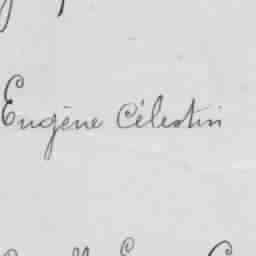 Eugène Célestin